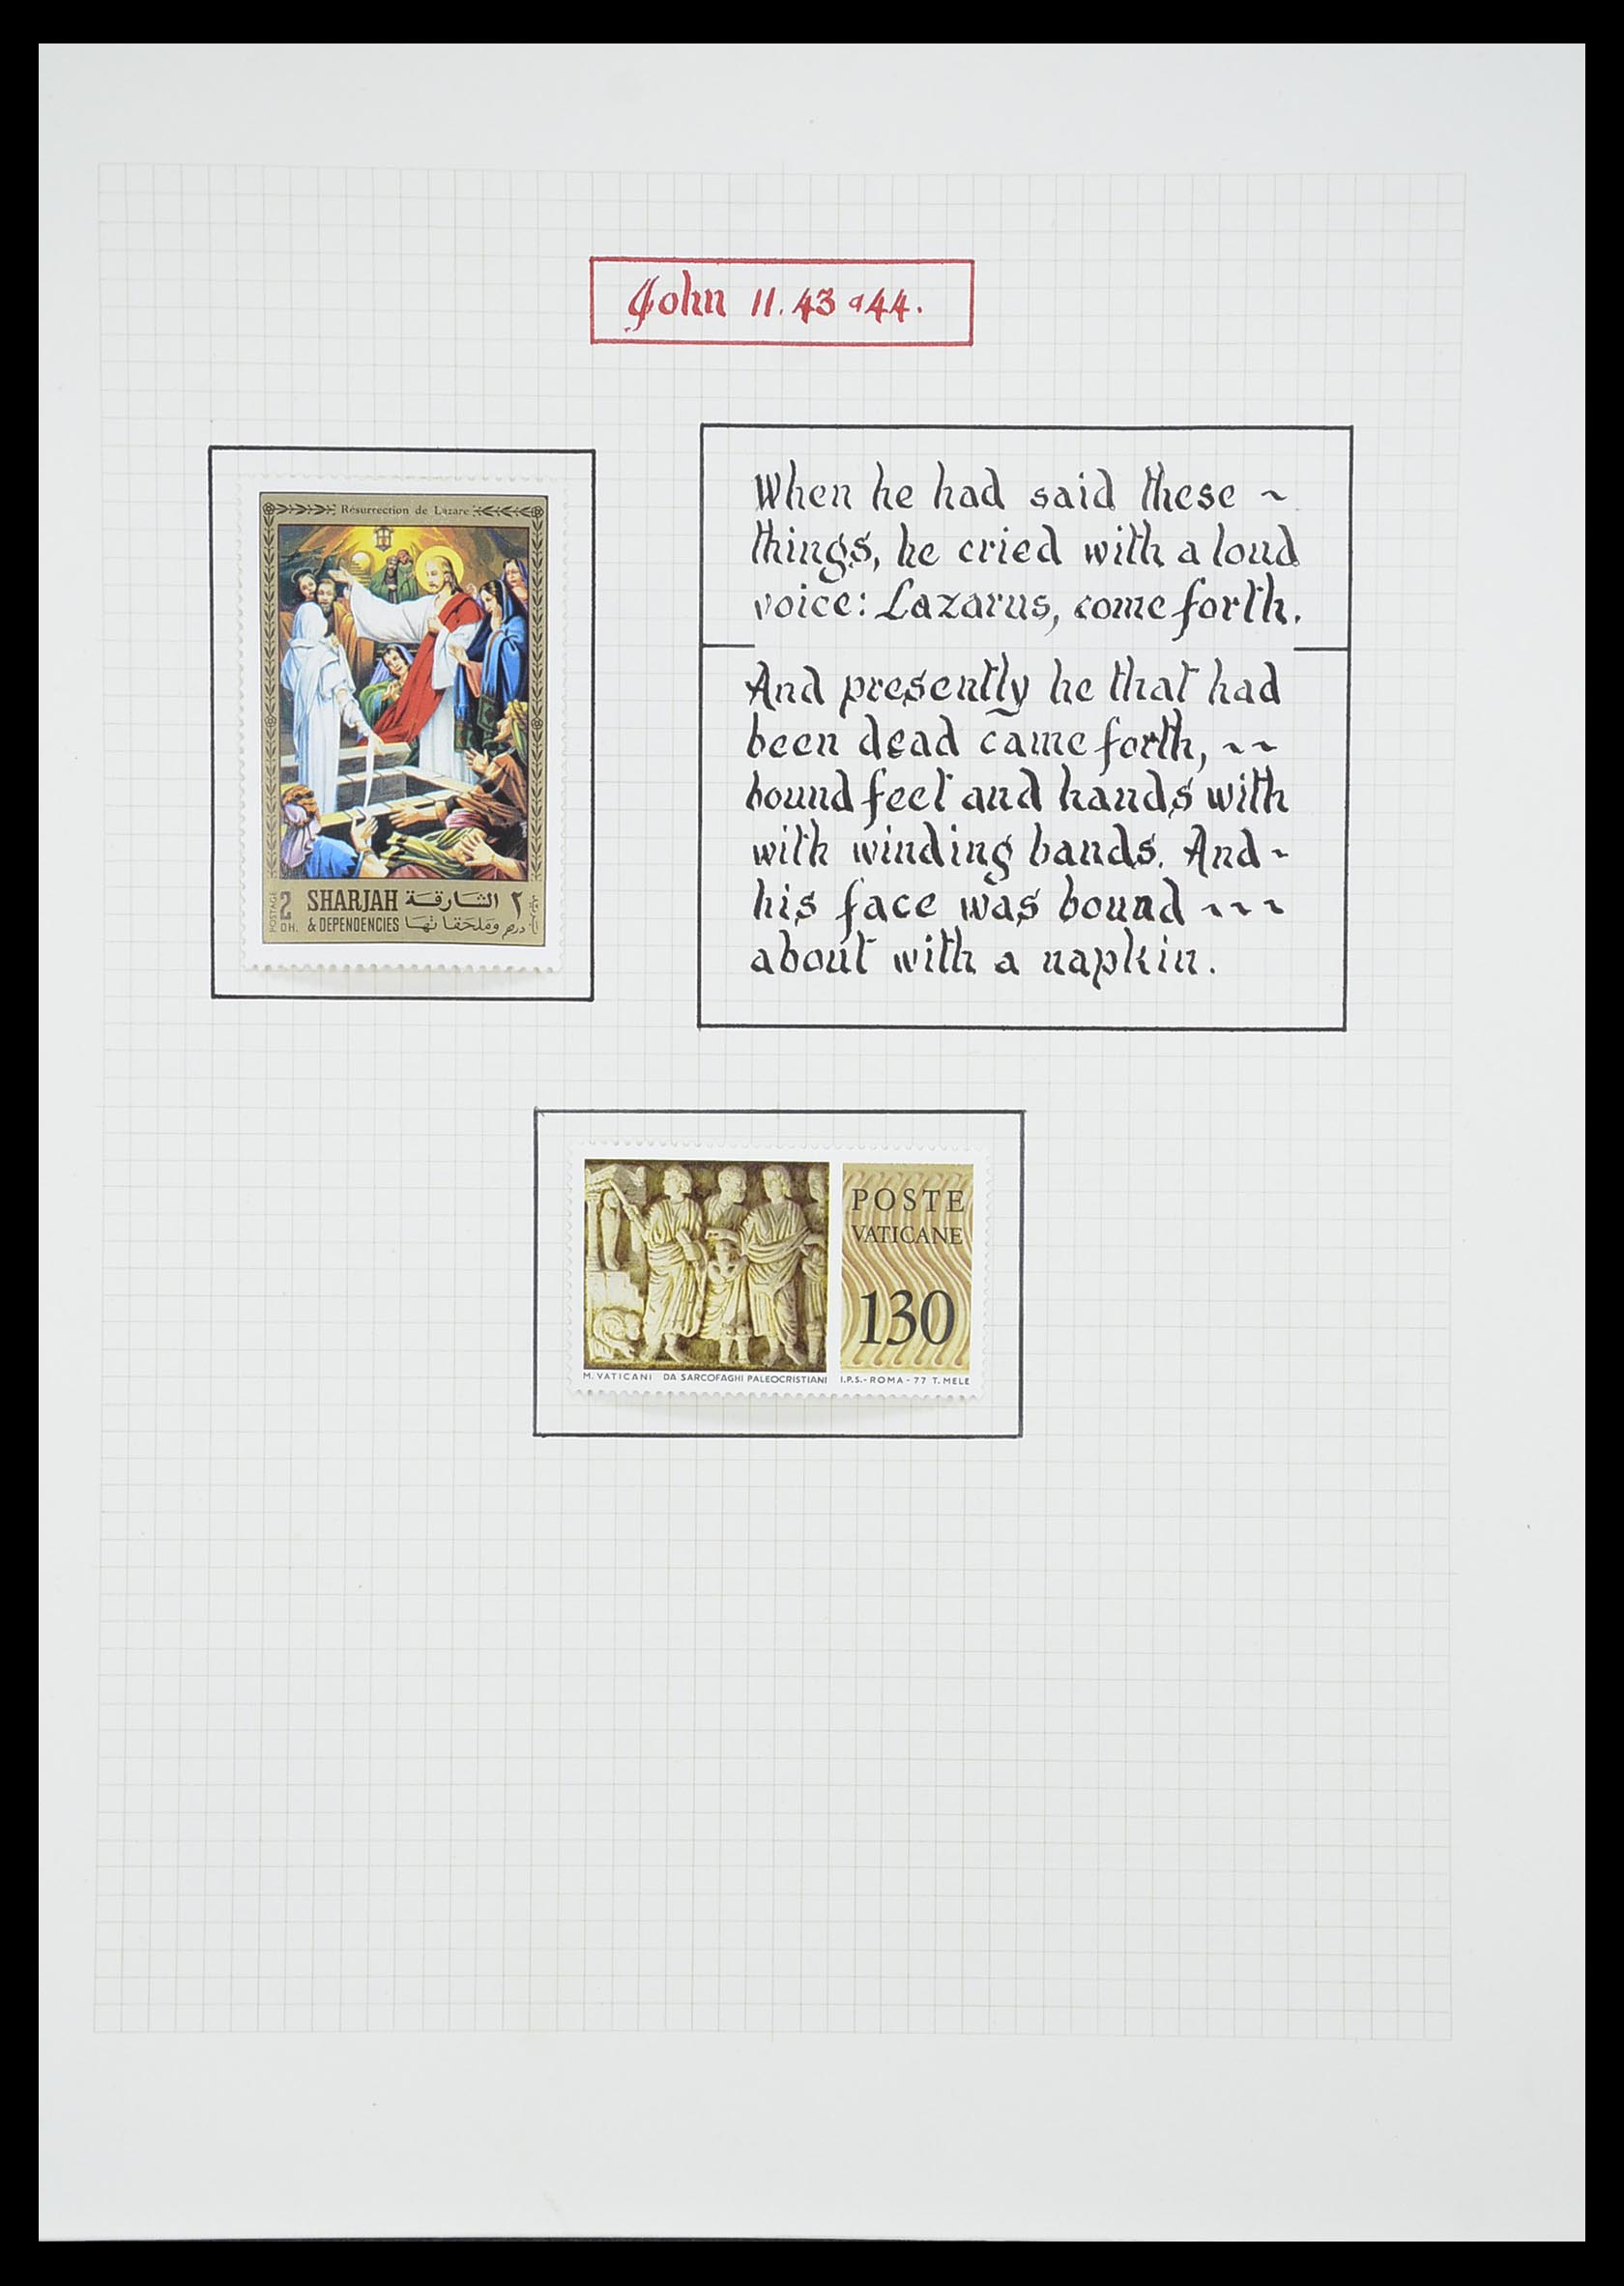 John 11. 43 a 44.
Résurrection de Lazare
POSTAGE
2
DH.
SHARJAH
& DEPENDENCIES
٢ الشارقة
درهم وملحقاتها
When he had said these ~
things, he cried with a loud
voice: Lazarus, come forth.
And presently he that had
been dead came forth, ~~
bound feet and hands with
with winding bands. And ~
his face was bound ~~~
about with a napkin.
POSTE
VATICANE
130
M. VATICANI DA SARCOFAGHI PALEOCRISTIANI
I.P.S. - ROMA - 77 T. MELE